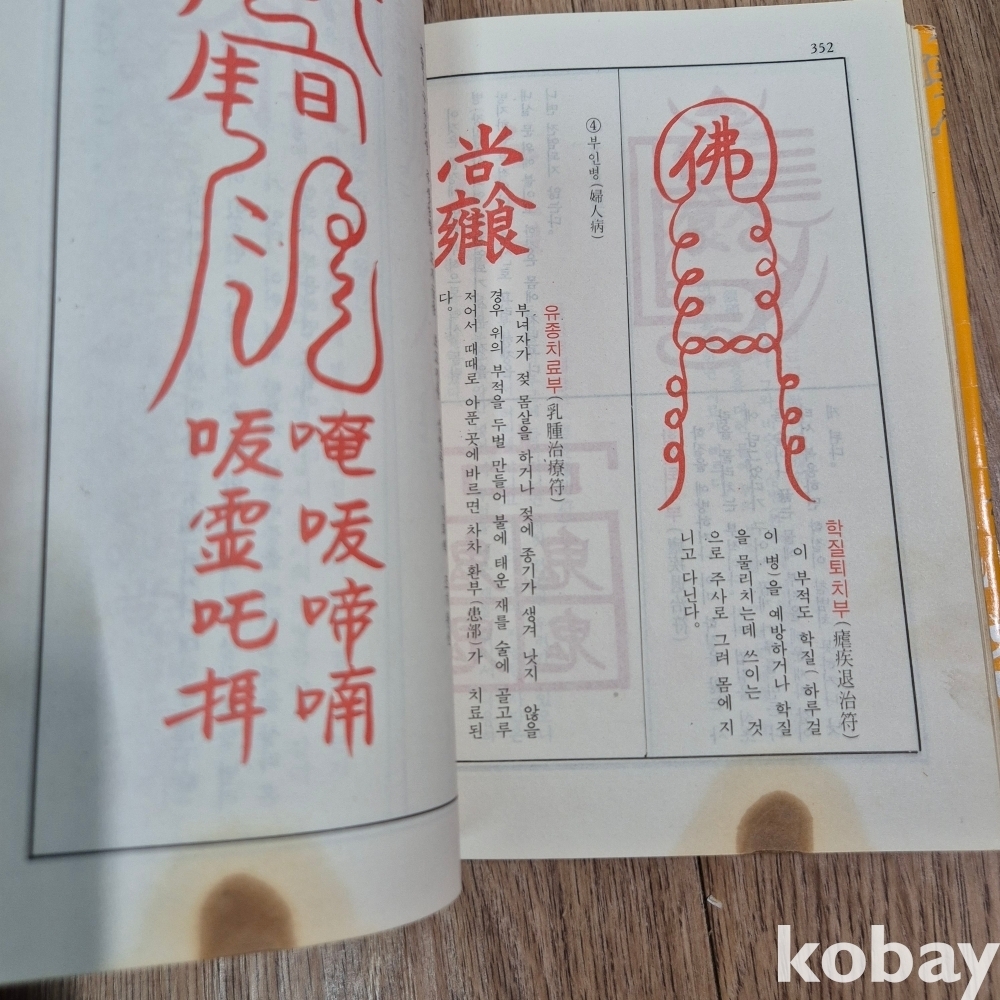 352
佛
학질퇴치부(瘧疾退治符)
이 부적도 학질(하루걸
이 병)을 예방하거나 학질
을 물리치는데 쓰이는 것
으로 주사로 그려 몸에 지
니고 다닌다。
④부인병(婦人病)
尚
雍食
유종치료부(乳腫治療符)
부녀자가 젖 몸살을 하거나 젖에 종기가 생겨 낫지 않을
경우 위의 부적을 두벌 만들어 불에 태운 재를 술에 골고루
저어서 때때로 아푼 곳에바르면 차차 환부(患部)가 치료된
다。
日
唵啼喃
靈吒
kobay